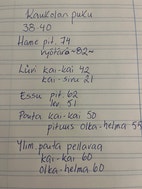 Kaukolan puku
38-40
Hame pit. 74
vyötärö ~82~
Liivi kai-kai 42
kai-sivu 21
Essu pit. 62
lev. 51
Paita kai-kai 50
pituus olka-helma 59
Ylim. paita pellavaa
kai-kai 60
olka-helma 60